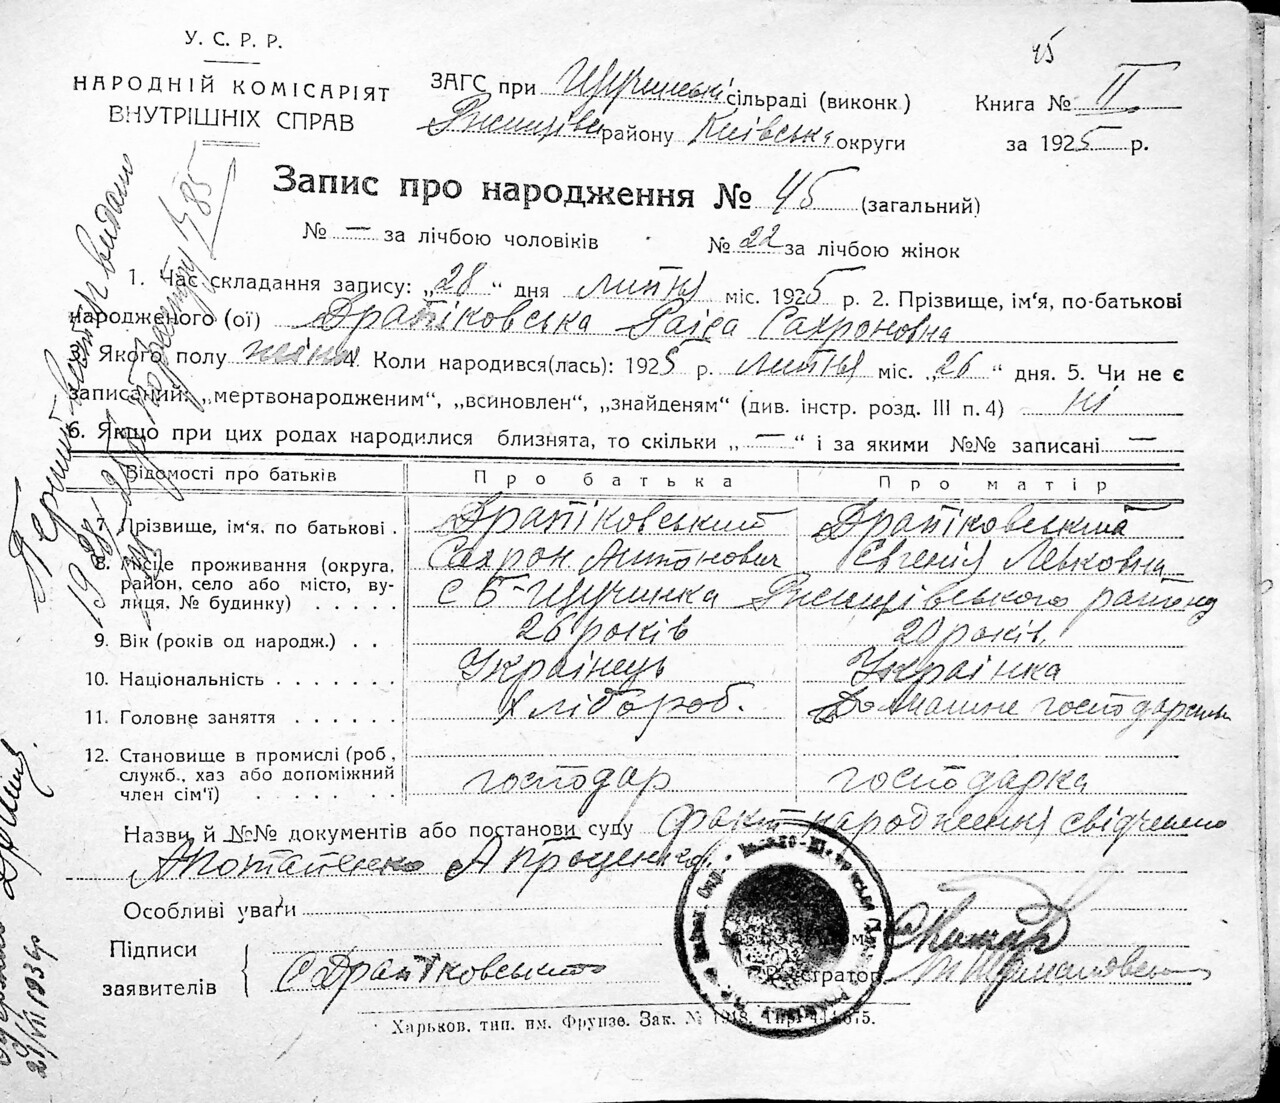 45
У. С. Р. Р.
НАРОДНІЙ КОМІСАРІЯТ
ВНУТРІШНІХ СПРАВ
ЗАГС при Щучинські сільраді (виконк.)
Ржищівс району Київська округи
Книга № II
за 1925 р.
Запис про народження № 45 (загальний)
№ — за лічбою чоловіків № 22 за лічбою жінок
1. Час складання запису: „28“ дня липня міс. 1925 р. 2. Прізвище, ім'я, по-батькові
народженого (ої) Драпіковська Раіса Сахроновна
3. Якого полу жіноч 4. Коли народився(лась): 1925 р. липня міс. „26“ дня. 5. Чи не є
записаний: „мертвонародженим“, „всиновлен“, „знайденям“ (див. інстр. розд. III п. 4) ні
6. Якщо при цих родах народилися близнята, то скільки „—“ і за якими №№ записані —
Відомості про батьків Про батька Про матір
7. Прізвище, ім'я, по батькові . Драпіковський Драпіковська
Сахрон Антонович Євгенія Левковна
8. Місце проживання (округа, район, село або місто, вулиця, № будинку) . . . . . с Б-Щучинка Ржищівського району
9. Вік (років од народж.) . . 26 років 20 років
10. Національність . . . . . . . Українець Українка
11. Головне заняття . . . . . . Хлібороб. Домашне господарство
12. Становище в промислі (роб., служб., хаз або допоміжний член сім'ї) . . . . . господар господарка
Назви й №№ документів або постанови суду факт народження свідчено
А Потапенко А Проценко
Особливі уваги
Підписи
заявителів
С Драпіковський
Реєстратор
Харьков. тип. им. Фрунзе. Зак. № 1918.